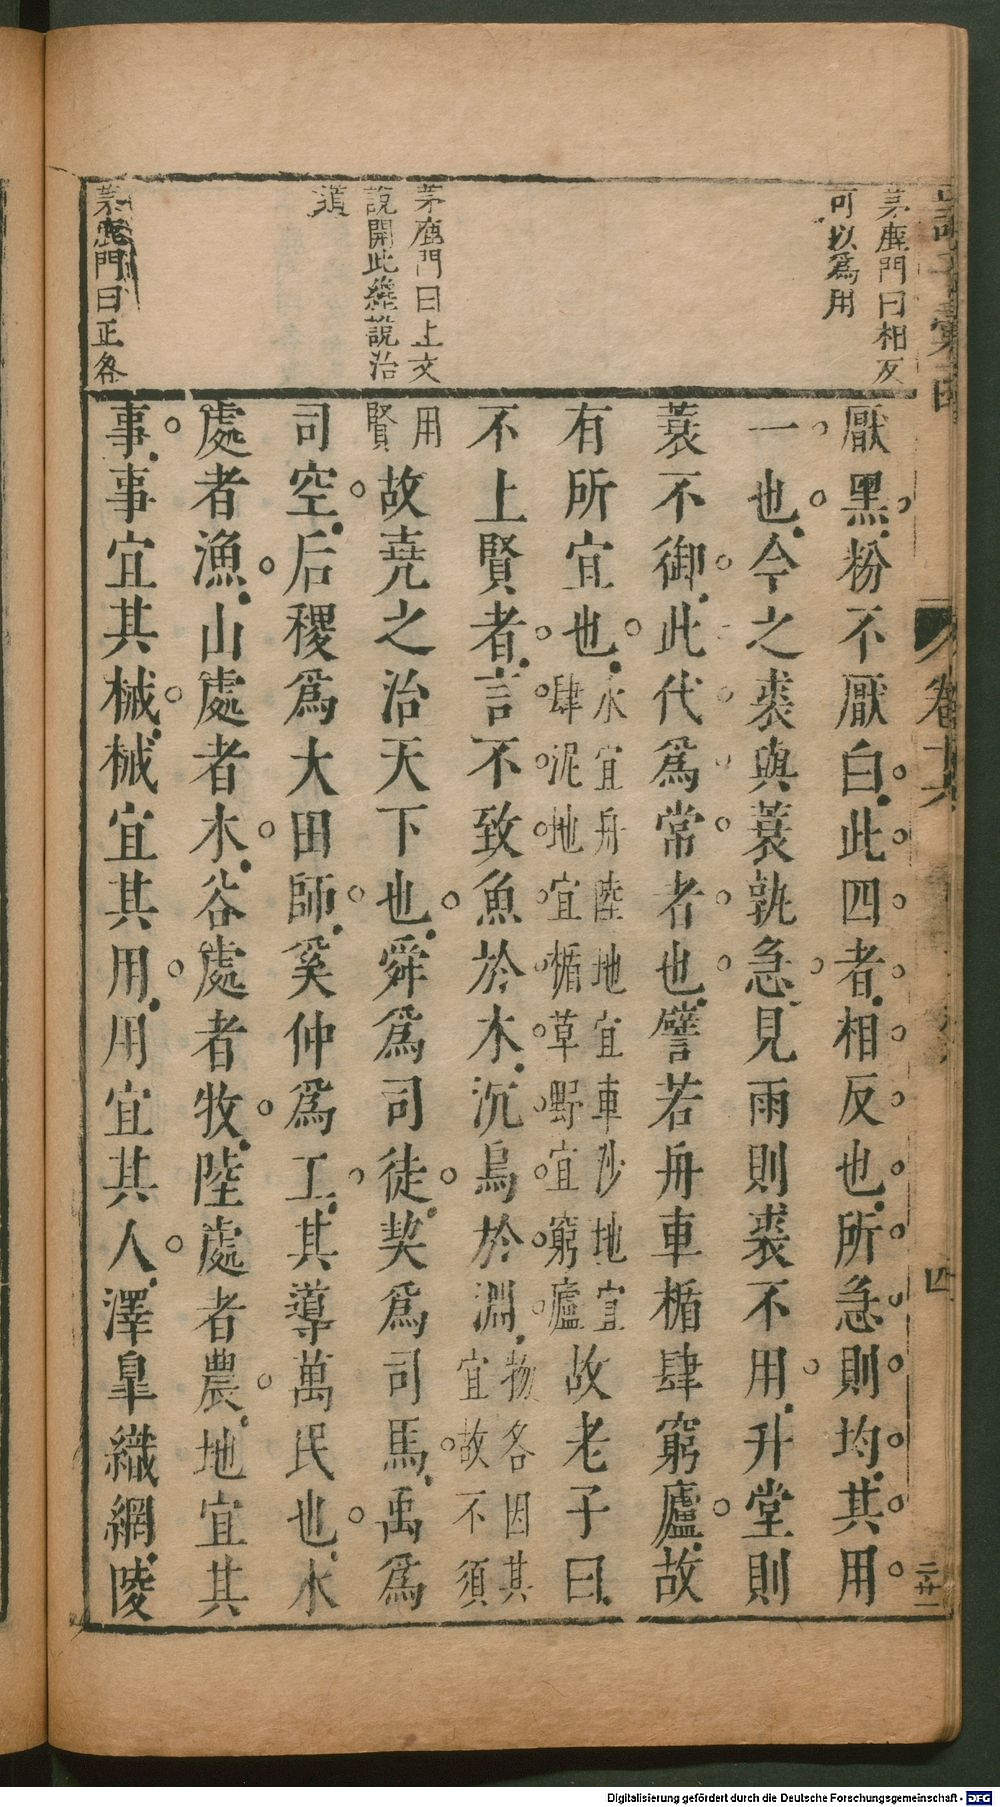 茅鹿門曰相反
可以爲用
茅鹿門曰上文
說開此纔說治
須
茅鹿門曰正答
厭黑粉不厭白此四者相反也所急則均其用
一也今之裘與蓑孰急見雨則裘不用升堂則
蓑不御此代爲常者也譬若舟車楯肆窮廬故
有所宜也水宜舟陸地宜車沙地宜
肆泥地宜楯草野宜窮廬故老子曰
不上賢者言不致魚於木沉鳥於淵物各因其
宜故不須
用
賢故堯之治天下也舜爲司徒契爲司馬禹爲
司空后稷爲大田師奚仲爲工其導萬民也水
處者漁山處者木谷處者牧陸處者農地宜其
事事宜其械械宜其用用宜其人澤皐織網陵
卷十六
四
Digitalisierung gefördert durch die Deutsche Forschungsgemeinschaft - DFG